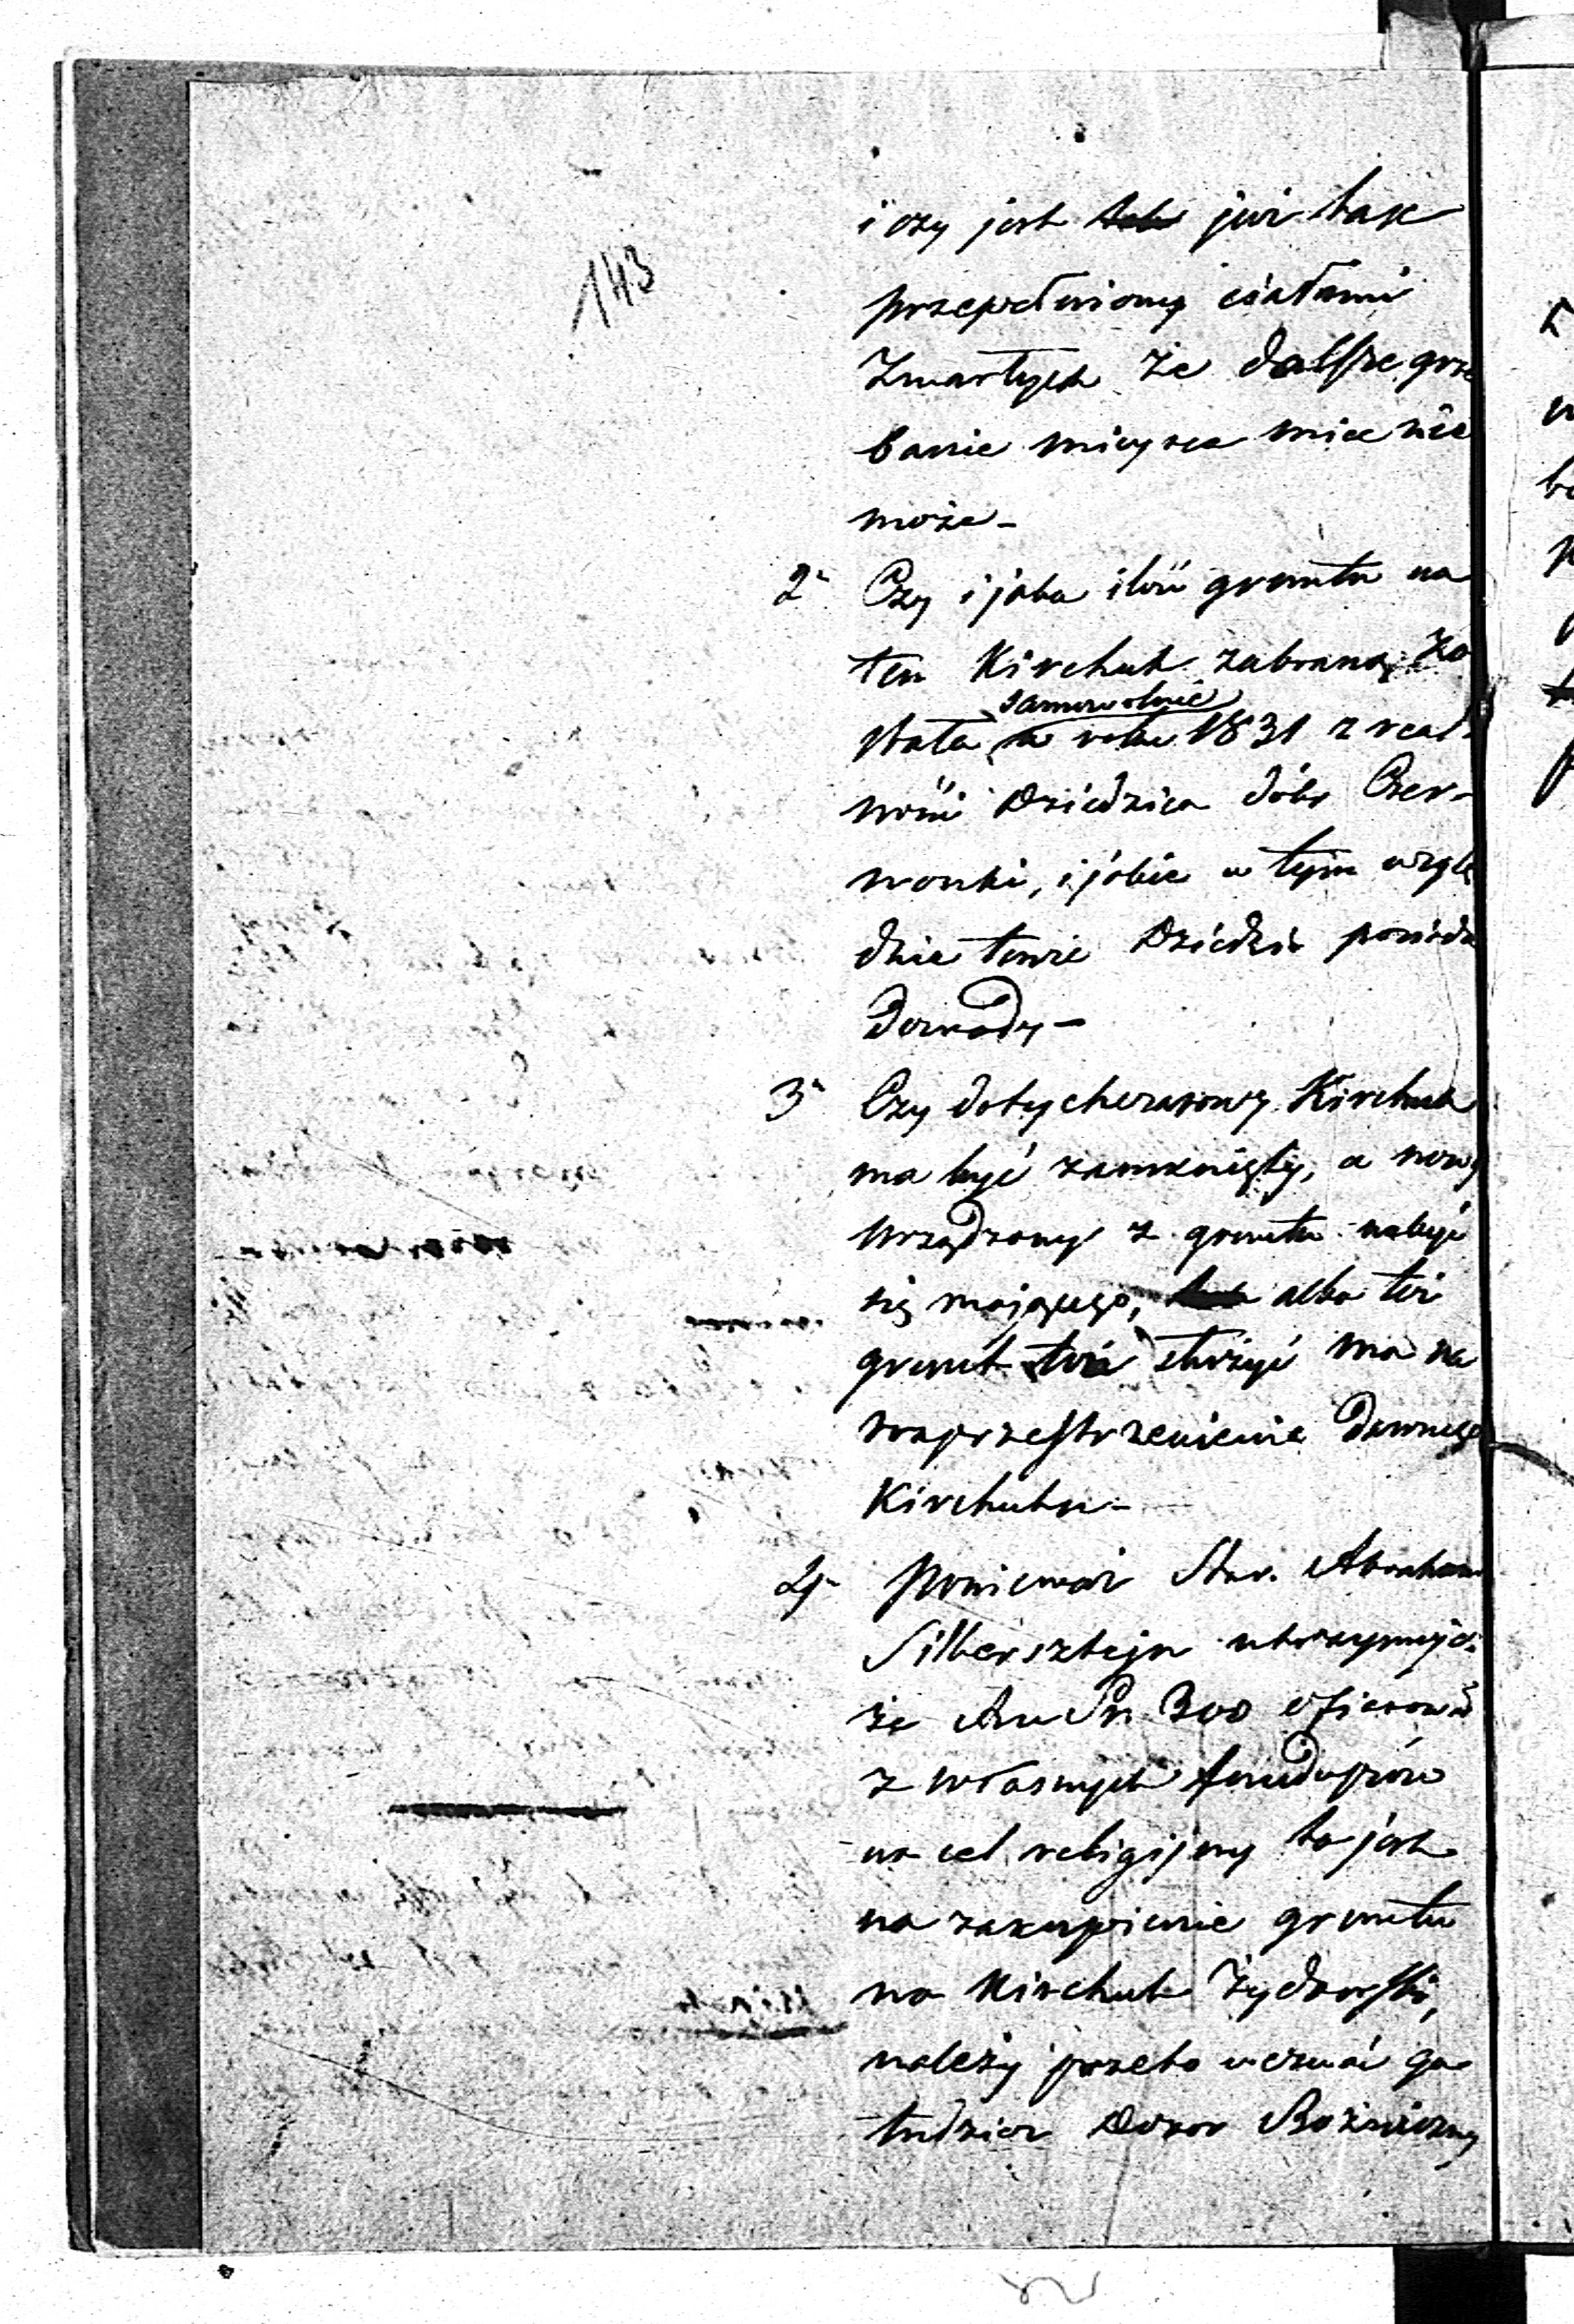 143
i czy jest już tak
przepełniony ciałami
Zmarłych że dalsze grze
banie mieysca mieć nie
może -
2. Czy i jaka ilość gruntu na
ten Kirchut zabraną zo
samowolnie
stała w roku 1831 z real
ności Dziedzica dóbr Czer-
wonki, i jakie w tym wzglę
dzie tenże Dziedzic posiada
Dowody -
3. Czy dotychczasowy Kirchut
ma być zamknięty, a nowy
urządzony z gruntu nabyć
się mającego, albo też
grunt ten służyć ma na
rozprzestrzenienie Dawnego
Kirchutu -
4. Ponieważ Star. Abraham
Silbersztejn utrzymuje
że 300 ofiarował
z własnych funduszów
na cel religijny to jest
na zakupienie gruntu
na Kirchut Żydowski,
należy przeto wezwać go
tudzież Dozor Bożniczny